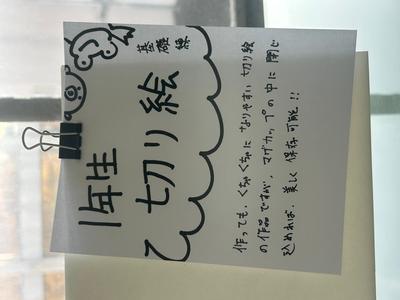 1年生
切り絵
基礎練
作っても、くちゃくちゃになりやすい切り絵
の作品ですが、マグカップの中に閉じ
込めれば、美しく保存可能!!